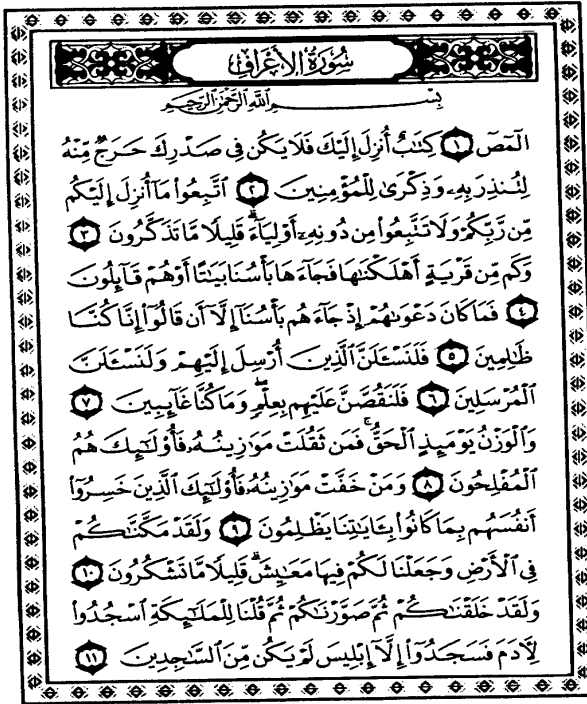 سُورَةُ الْأَعْرَافِ
بِسْمِ اللَّهِ الرَّحْمَنِ الرَّحِيمِ
الٓمٓصٓ ١ كِتَٰبٌ أُنزِلَ إِلَيْكَ فَلَا يَكُن فِى صَدْرِكَ حَرَجٌ مِّنْهُ
لِتُنذِرَ بِهِۦ وَذِكْرَىٰ لِلْمُؤْمِنِينَ ٢ ٱتَّبِعُوا۟ مَآ أُنزِلَ إِلَيْكُم
مِّن رَّبِّكُمْ وَلَا تَتَّبِعُوا۟ مِن دُونِهِۦٓ أَوْلِيَآءَ ۗ قَلِيلًا مَّا تَذَكَّرُونَ ٣
وَكَم مِّن قَرْيَةٍ أَهْلَكْنَٰهَا فَجَآءَهَا بَأْسُنَا بَيَٰتًا أَوْ هُمْ قَآئِلُونَ
٤ فَمَا كَانَ دَعْوَىٰهُمْ إِذْ جَآءَهُم بَأْسُنَآ إِلَّآ أَن قَالُوٓا۟ إِنَّا كُنَّا
ظَٰلِمِينَ ٥ فَلَنَسْـَٔلَنَّ ٱلَّذِينَ أُرْسِلَ إِلَيْهِمْ وَلَنَسْـَٔلَنَّ
ٱلْمُرْسَلِينَ ٦ فَلَنَقُصَّنَّ عَلَيْهِم بِعِلْمٍ ۖ وَمَا كُنَّا غَآئِبِينَ ٧
وَٱلْوَزْنُ يَوْمَئِذٍ ٱلْحَقُّ ۚ فَمَن ثَقُلَتْ مَوَٰزِينُهُۥ فَأُو۟لَٰٓئِكَ هُمُ
ٱلْمُفْلِحُونَ ٨ وَمَنْ خَفَّتْ مَوَٰزِينُهُۥ فَأُو۟لَٰٓئِكَ ٱلَّذِينَ خَسِرُوٓا۟
أَنفُسَهُم بِمَا كَانُوا۟ بِـَٔايَٰتِنَا يَظْلِمُونَ ٩ وَلَقَدْ مَكَّنَّٰكُمْ
فِى ٱلْأَرْضِ وَجَعَلْنَا لَكُمْ فِيهَا مَعَٰيِشَ ۗ قَلِيلًا مَّا تَشْكُرُونَ ١٠
وَلَقَدْ خَلَقْنَٰكُمْ ثُمَّ صَوَّرْنَٰكُمْ ثُمَّ قُلْنَا لِلْمَلَٰٓئِكَةِ ٱسْجُدُوا۟
لِـَٔادَمَ فَسَجَدُوٓا۟ إِلَّآ إِبْلِيسَ لَمْ يَكُن مِّنَ ٱلسَّٰجِدِينَ ١١